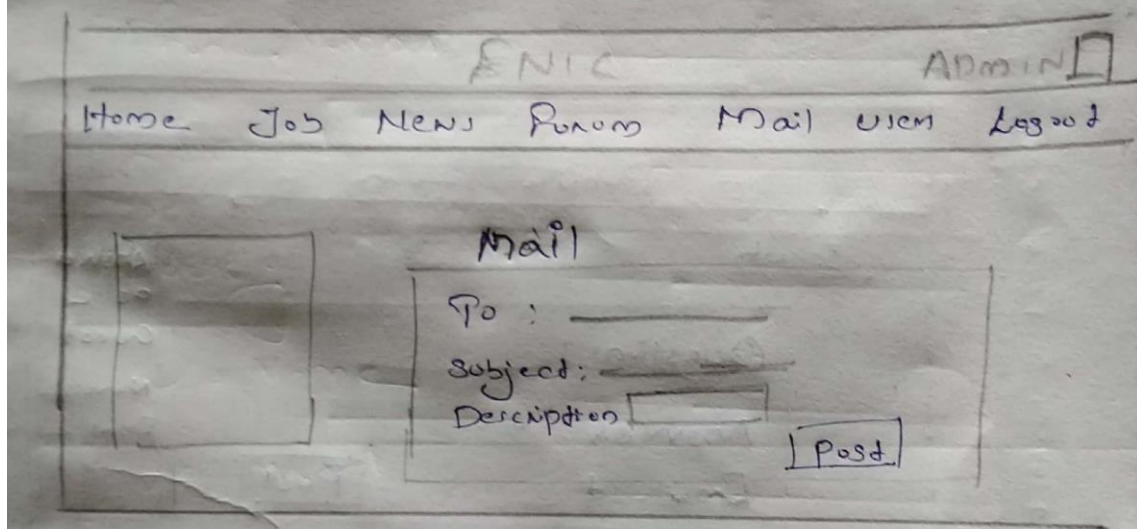 ENIC ADMIN
Home Job News Forum Mail User Logout
Mail
To :
Subject :
Description
Post